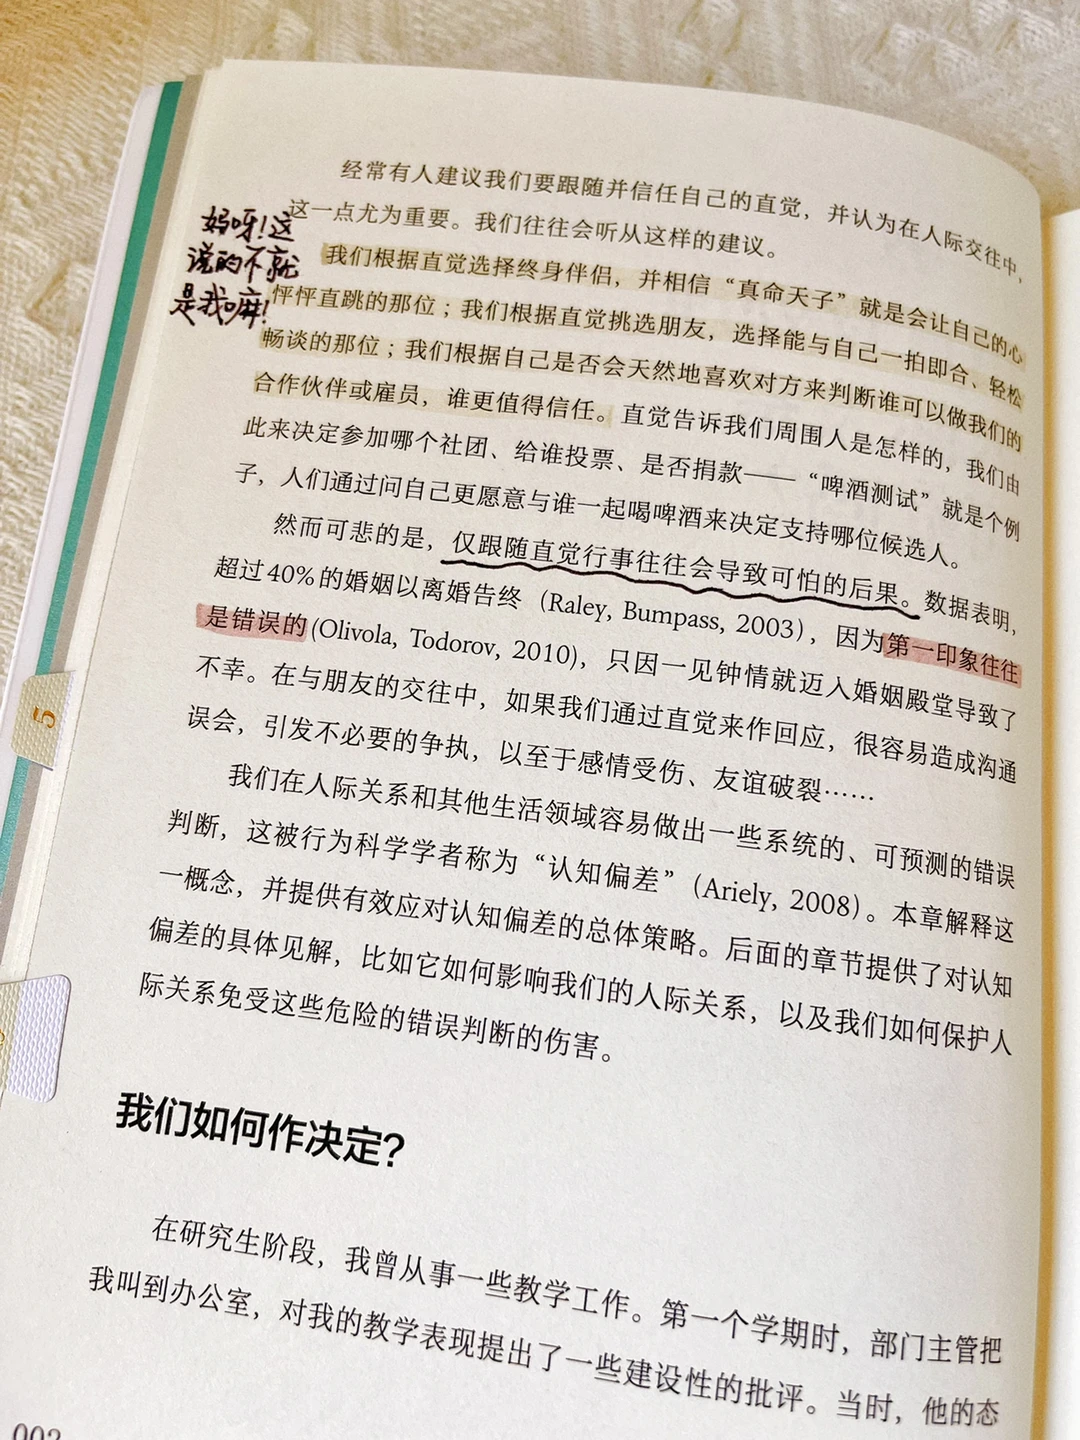 经常有人建议我们要跟随并信任自己的直觉，并认为在人际交往中，
这一点尤为重要。我们往往会听从这样的建议。
妈呀！这
说的不就
是我嘛！
我们根据直觉选择终身伴侣，并相信“真命天子”就是会让自己的心
怦怦直跳的那位；我们根据直觉挑选朋友，选择能与自己一拍即合、轻松
畅谈的那位；我们根据自己是否会天然地喜欢对方来判断谁可以做我们的
合作伙伴或雇员，谁更值得信任。直觉告诉我们周围人是怎样的，我们由
此来决定参加哪个社团、给谁投票、是否捐款——“啤酒测试”就是个例
子，人们通过问自己更愿意与谁一起喝啤酒来决定支持哪位候选人。
然而可悲的是，仅跟随直觉行事往往会导致可怕的后果。数据表明，
超过40%的婚姻以离婚告终（Raley, Bumpass, 2003），因为第一印象往往
是错误的(Olivola, Todorov, 2010)，只因一见钟情就迈入婚姻殿堂导致了
不幸。在与朋友的交往中，如果我们通过直觉来作回应，很容易造成沟通
误会，引发不必要的争执，以至于感情受伤、友谊破裂……
我们在人际关系和其他生活领域容易做出一些系统的、可预测的错误
判断，这被行为科学学者称为“认知偏差”（Ariely, 2008）。本章解释这
一概念，并提供有效应对认知偏差的总体策略。后面的章节提供了对认知
偏差的具体见解，比如它如何影响我们的人际关系，以及我们如何保护人
际关系免受这些危险的错误判断的伤害。
5
我们如何作决定？
在研究生阶段，我曾从事一些教学工作。第一个学期时，部门主管把
我叫到办公室，对我的教学表现提出了一些建设性的批评。当时，他的态